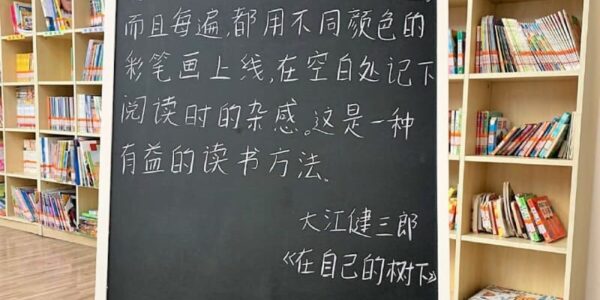 而且每遍,都用不同颜色的
彩笔画上线,在空白处记下
阅读时的杂感。这是一种
有益的读书方法、
大江健三郎
《在自己的树下》